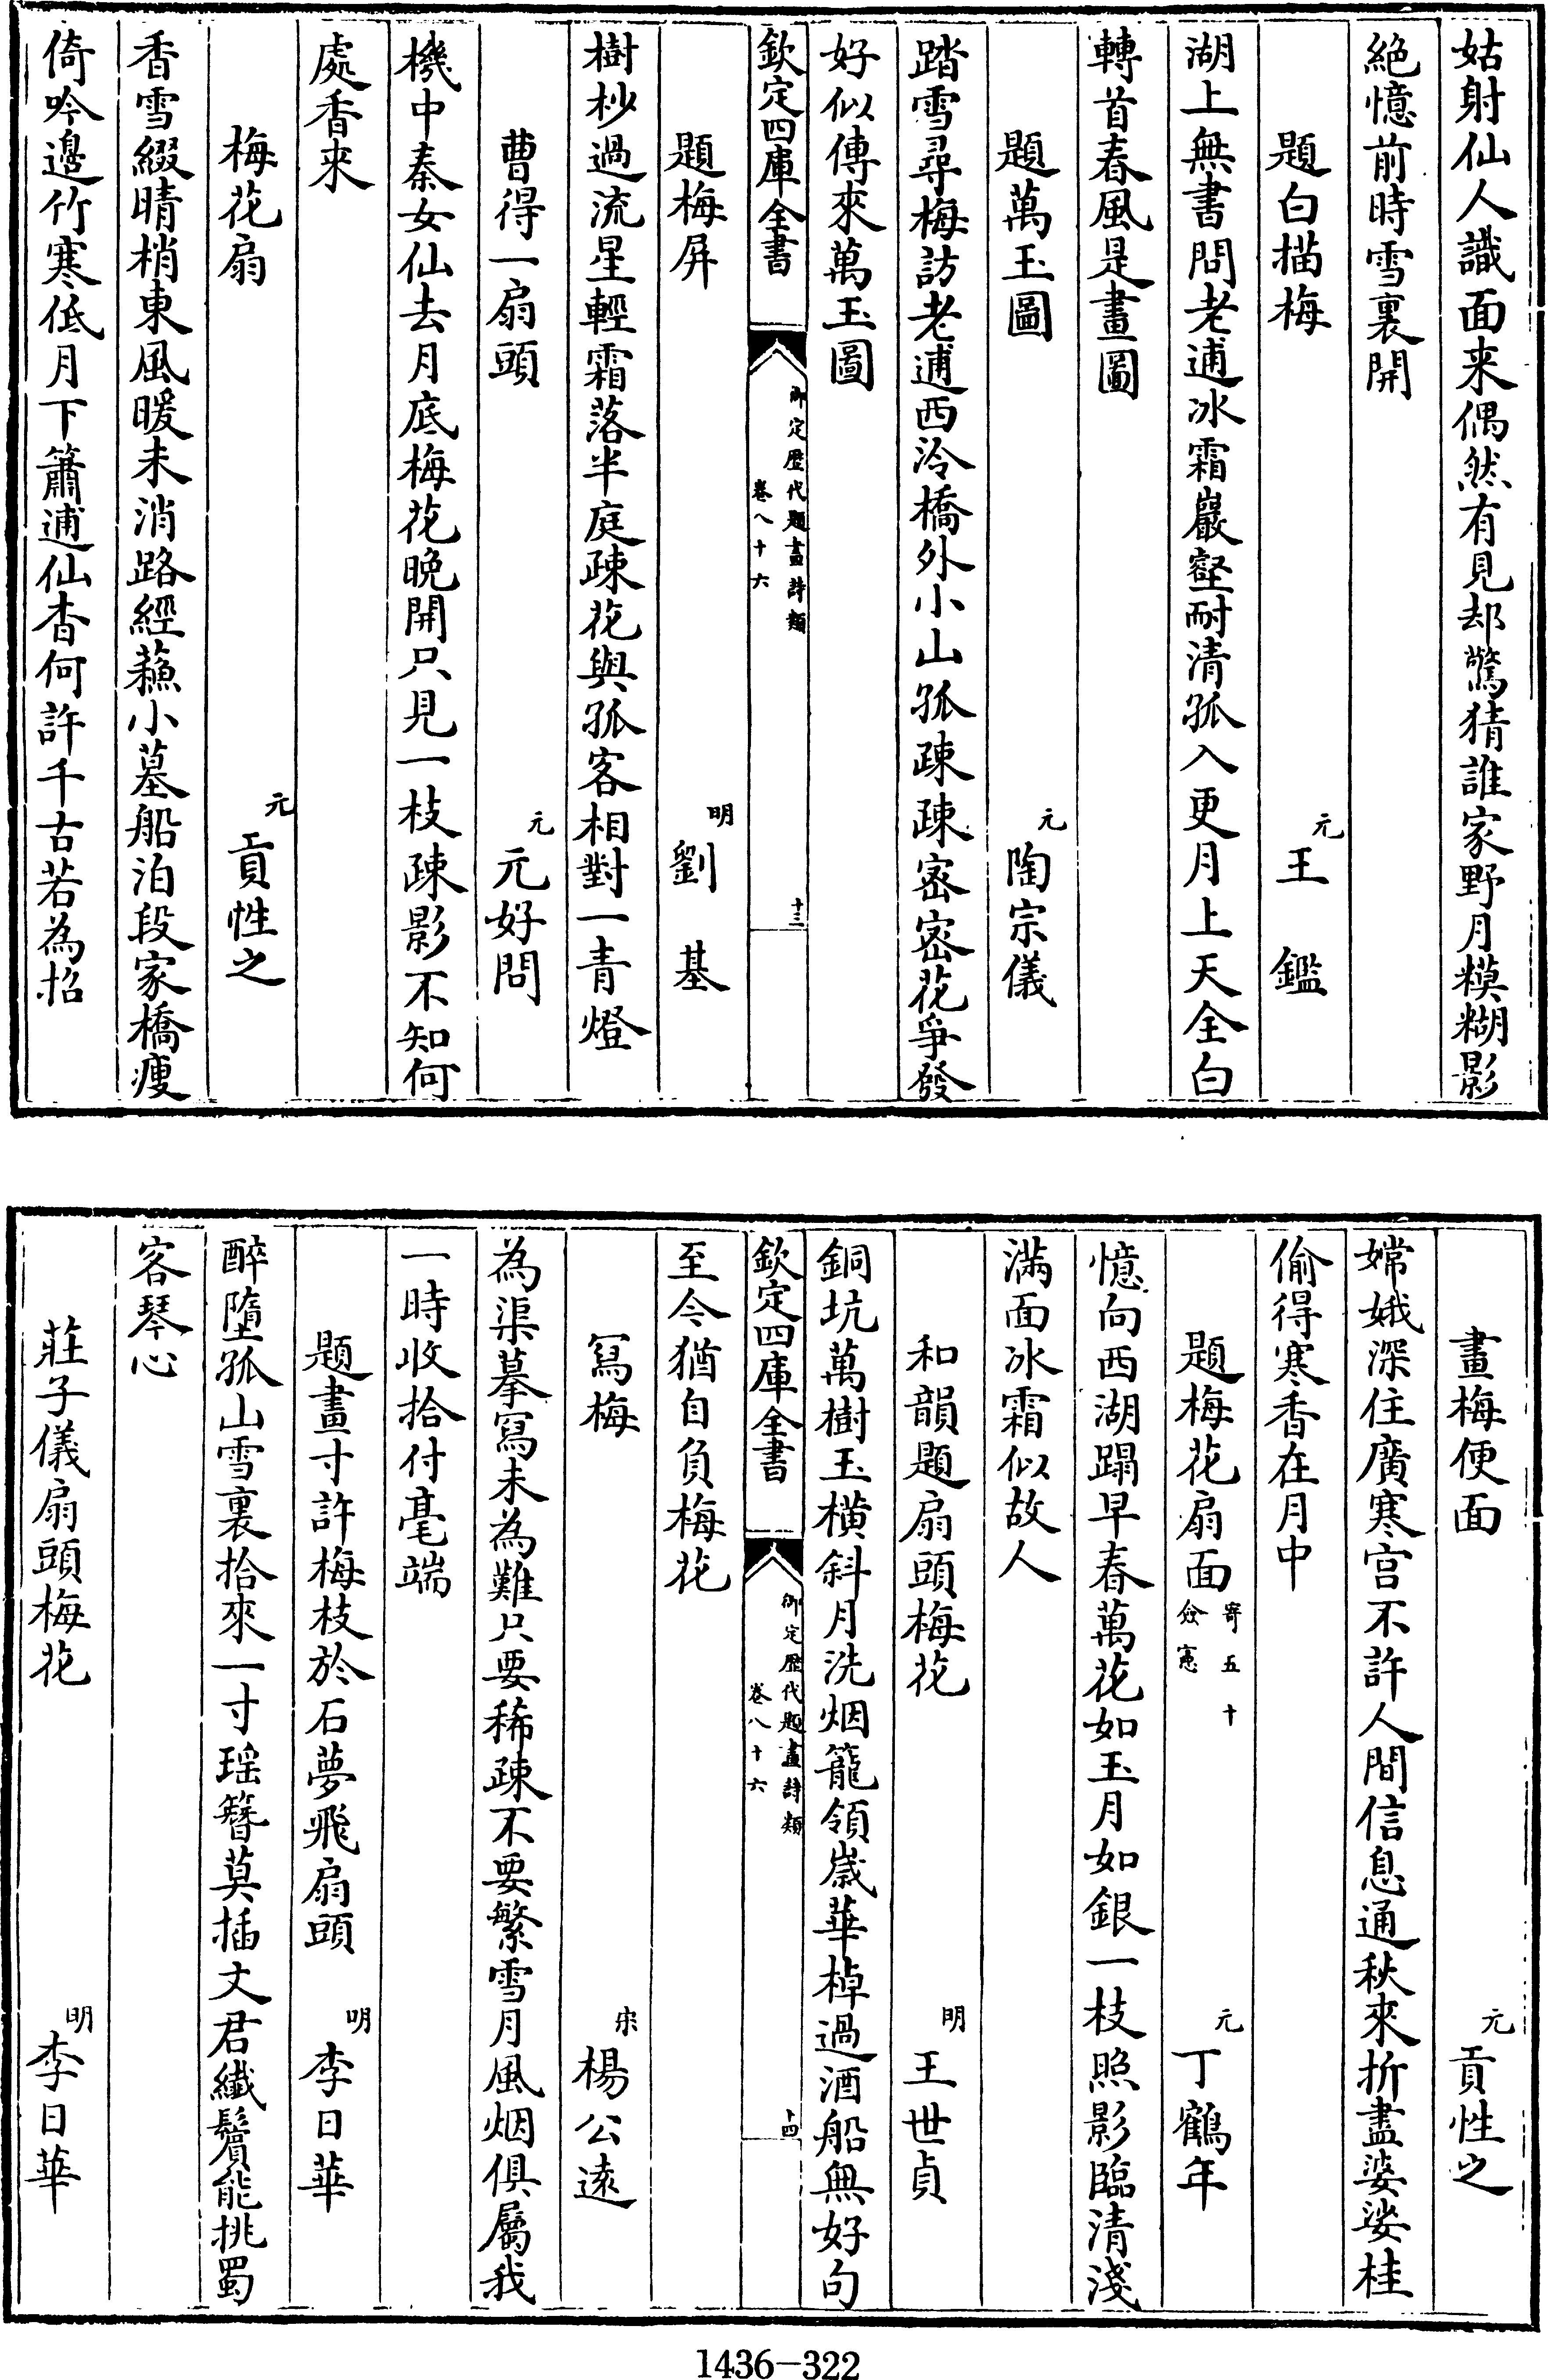 姑射仙人識面来偶然有見却驚猜誰家野月糢糊影
絕憶前時雪裏開
題白描梅 元 王鑑
湖上無書問老逋冰霜巖壑耐清孤入更月上天全白
轉首春風是畫圖
題萬玉圖 元 陶宗儀
踏雪尋梅訪老逋西泠橋外小山孤疎疎密密花爭發
好似傳來萬玉圖
欽定四庫全書 御定歷代題畫詩類 卷八十六 十三
題梅屏 明 劉基
樹杪過流星輕霜落半庭疎花與孤客相對一青燈
曹得一扇頭 元 元好問
機中秦女仙去月底梅花晚開只見一枝疎影不知何
處香來
梅花扇 元 貢性之
香雪綴晴梢東風暖未消路經蘓小墓船泊段家橋瘦
倚吟邊竹寒低月下簫逋仙杳何許千古若為招
畫梅便面 元 貢性之
嫦娥深住廣寒宫不許人間信息通秋來折盡婆娑桂
偷得寒香在月中
題梅花扇面 寄五十僉憲 元 丁鶴年
憶向西湖蹋早春萬花如玉月如銀一枝照影臨清淺
滿面冰霜似故人
和韻題扇頭梅花 明 王世貞
銅坑萬樹玉橫斜月洗烟籠領嵗華棹過酒船無好句
欽定四庫全書 御定歷代題畫詩類 卷八十六 十四
至今猶自負梅花
冩梅 宋 楊公遠
為渠摹冩未為難只要稀疎不要繁雪月風烟俱屬我
一時收拾付毫端
題畫寸許梅枝於石夢飛扇頭 明 李日華
醉墮孤山雪裏拾來一寸瑶簪莫插文君纖鬢能挑蜀
客琴心
莊子儀扇頭梅花 明 李日華
1436-322